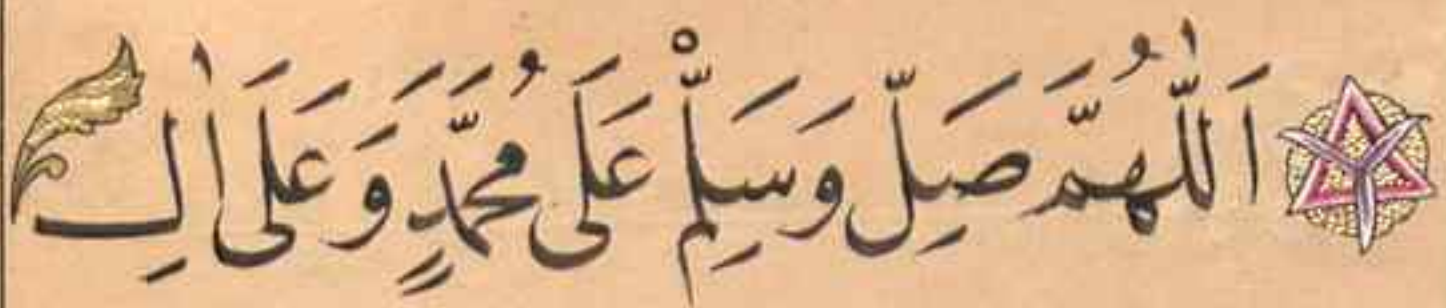 اَللّٰهُمَّ صَلِّ وَسَلِّمْ عَلَى مُحَمَّدٍ وَعَلَى اٰلِ